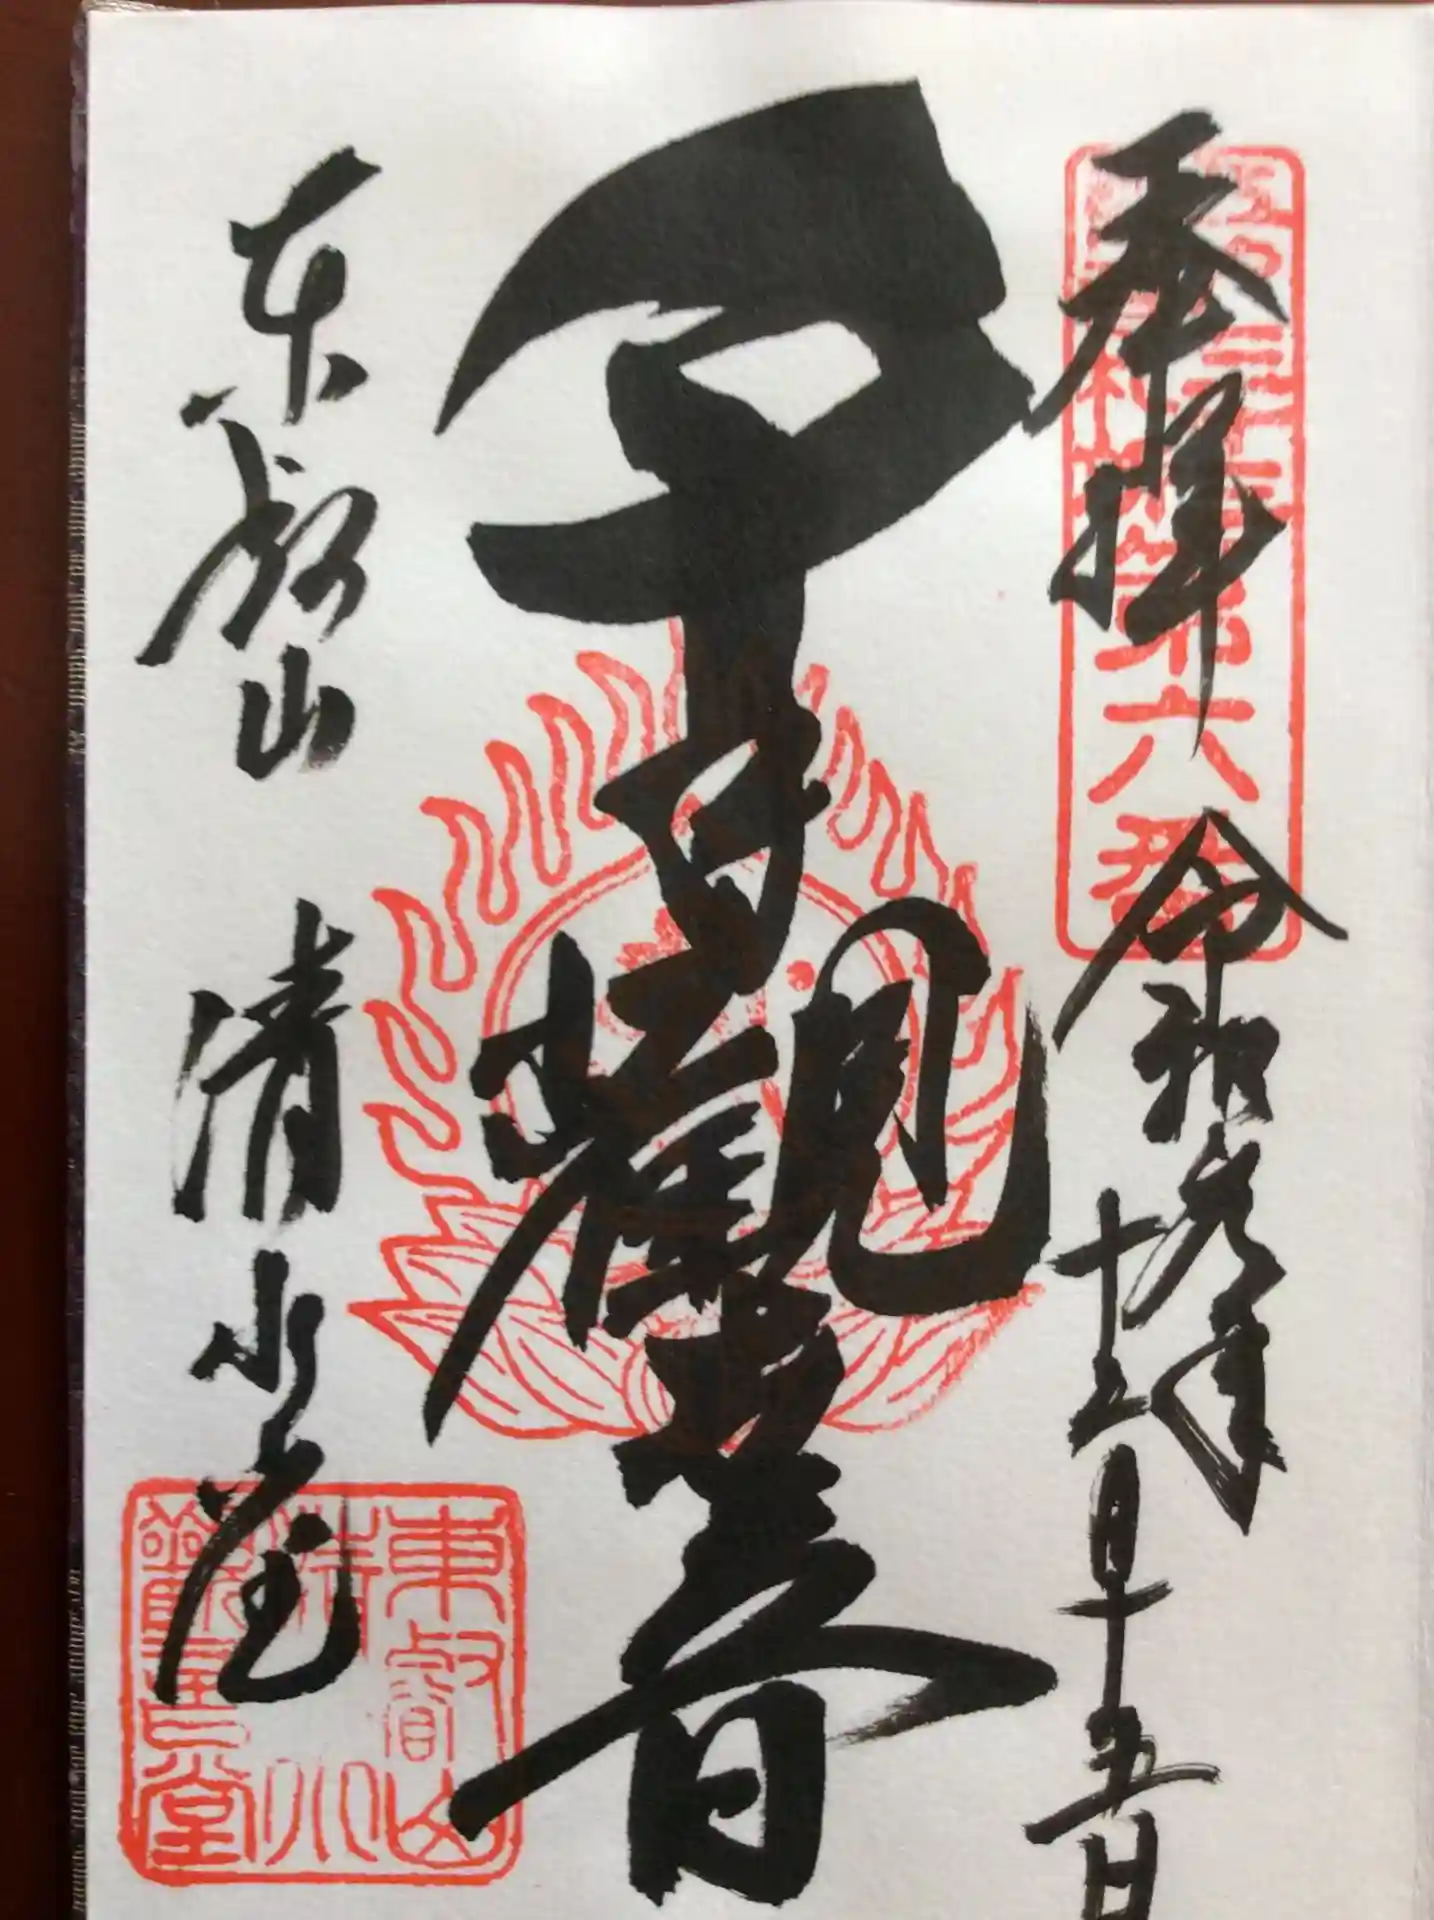 奉拝
第六番
令和元年
十二月十五日
千手觀世音
東叡山 清水堂
東叡山
清水
觀音堂